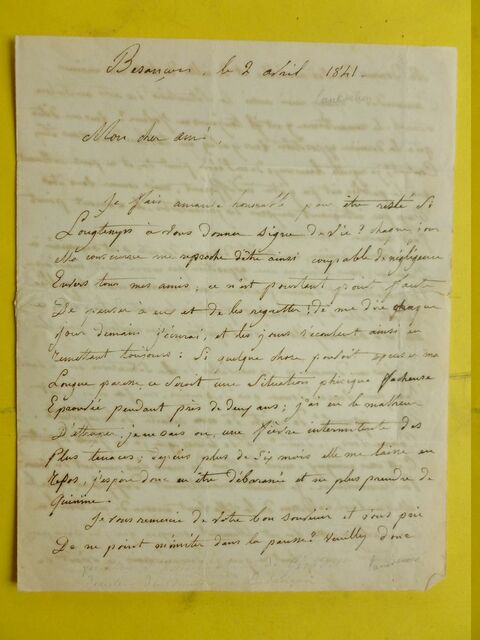 Besançon, le 2 avril 1841.
Mon cher ami,
Je fais amande honorable pour être resté si
Longtemps à vous donner signe de vie ? chaque jour
Ma conscience me reproche d'être ainsi coupable de négligence
Envers tous mes amis ; ce n'est pourtant point faute
De penser à eux et de les regretter ; de me dire chaque
Jour demain j'écrirai, et les jours s'écoulent ainsi en
remettant toujours : Si quelque chose pouvoit excuser ma
Longue paresse, ce seroit une situation phisique facheuse
Eprouvée pendant près de deux ans ; j'ai eu le malheur
D'attraper je ne sais où, une fièvre intermittente des
Plus tenaces ; depuis plus de six mois elle me laisse en
repos, j'espère donc en être débarassé et ne plus prendre de
Quinine.
Je vous remercie de votre bon souvenir et vous prie
De ne point m'imiter dans la paresse ? veuillez donc